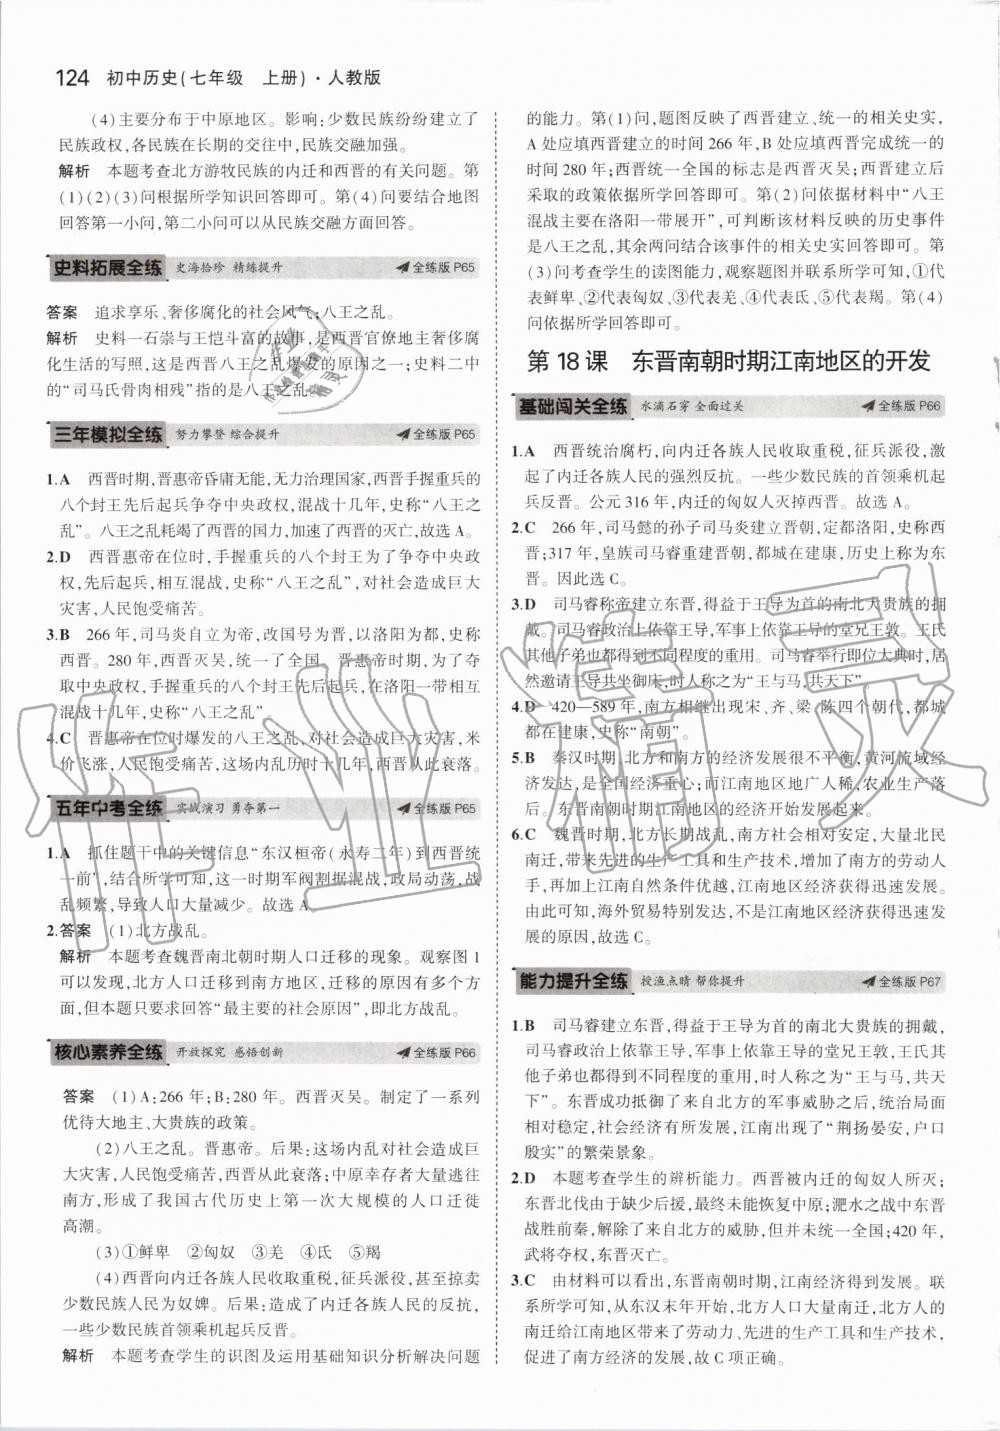 124 初中历史(七年级 上册)·人教版
(4)主要分布于中原地区。影响:少数民族纷纷建立了
民族政权,各民族在长期的交往中,民族交融加强。
解析 本题考查北方游牧民族的内迁和西晋的有关问题。第
(1)(2)(3)问根据所学知识回答即可。第(4)问要结合地图
回答第一小问,第二小问可以从民族交融方面回答。
史料拓展全练 史海拾珍 精练提升 全练版 P65
答案 追求享乐、奢侈腐化的社会风气;八王之乱。
解析 史料一石崇与王恺斗富的故事,是西晋官僚地主奢侈腐
化生活的写照,这是西晋八王之乱爆发的社会根源;史料二中
的“司马氏骨肉相残”指的是八王之乱。
三年模拟全练 努力攀登 综合提升 全练版 P65
1.A 西晋时期,晋惠帝昏庸无能,无力治理国家,西晋手握重兵的
八个封王先后起兵争夺中央政权,混战十几年,史称“八王之
乱”。八王之乱耗竭了西晋的国力,加速了西晋的灭亡,故选 A。
2.D 西晋惠帝在位时,手握重兵的八个封王为了争夺中央政
权,先后起兵,相互混战,史称“八王之乱”,对社会造成巨大
灾害,人民饱受痛苦。
3.B 266 年,司马炎自立为帝,改国号为晋,以洛阳为都,史称
西晋。280 年,西晋灭吴,统一了全国。晋惠帝时期,为了夺
取中央政权,手握重兵的八个封王先后起兵,在洛阳一带相互
混战十几年,史称“八王之乱”。
4.C 晋惠帝在位时爆发的八王之乱,对社会造成巨大灾害,米
价飞涨,人民饱受痛苦,这场内乱对社会造成巨大灾害,西晋从此衰落。
五年中考全练 实战演习 勇夺第一 全练版 P65
1.A 抓住题干中的关键信息“东汉桓帝(永寿二年)到西晋统
一前”,结合所学可知,这一时期军阀割据混战,政局动荡,战
乱频繁,导致人口大量减少。故选 A。
2.答案 (1)北方战乱。
解析 本题考查魏晋南北朝时期人口迁移的现象。观察图 1
可知,北方人口迁移到南方地区,迁移的原因可能有多个方
面,但本题只要求回答“最主要的社会原因”,即北方战乱。
核心素养全练 开放探究 感悟创新 全练版 P66
答案 (1)A:266 年;B:280 年。西晋灭吴。制定了一系列
优待大地主、大贵族的政策。
(2)八王之乱。晋惠帝。后果:这场内乱对社会造成巨大
灾害,人民饱受痛苦,西晋从此衰落;中原幸存者大量迁往
南方,形成了我国古代历史上第一次大规模的人口迁徙
高潮。
(3)①鲜卑 ②匈奴 ③羌 ④氐 ⑤羯
(4)西晋向内迁各族人民收取重税,征兵派役,甚至掠卖
少数民族人民为奴婢。后果:造成了内迁各族人民的反抗,
一些少数民族首领乘机起兵反晋。
解析 本题考查学生的识图及运用基础知识分析解决问题
的能力。第(1)问,题图反映了西晋建立、统一的相关史实,
A 处应填西晋建立的时间 266 年,B 处应填西晋完成统一的
时间 280 年;西晋统一全国的标志是西晋灭吴;西晋建立后
采取的政策依据所学回答即可。第(2)问依据材料中“八王
混战主要在洛阳一带展开”,可判断该材料反映的历史事件
是八王之乱,其余两问结合该事件的相关史实回答即可。第
(3)问考查学生的读图能力,观察题图并联系所学可知,①代
表鲜卑、②代表匈奴、③代表羌、④代表氐、⑤代表羯。第(4)
问依据所学回答即可。
第 18 课 东晋南朝时期江南地区的开发
基础闯关全练 水滴石穿 全面过关 全练版 P66
1.A 西晋统治腐朽,向内迁各族人民收取重税,征兵派役,激
起了内迁各族人民的强烈反抗。一些少数民族的首领乘机起
兵反晋。公元 316 年,内迁的匈奴人灭掉西晋。故选 A。
2.C 266 年,司马懿的孙子司马炎建立晋朝,定都洛阳,史称西
晋;317 年,皇族司马睿重建晋朝,都城在建康,历史上称为东
晋。因此选 C。
3.D 司马睿称帝建立东晋,得益于王导为首的南北大贵族的拥
戴。司马睿政治上依靠王导,军事上依靠王导的堂兄王敦。王氏
其他子弟也都得到不同程度的重用。司马睿举行即位大典时,居
然邀请王导共坐御床,时人称之为“王与马,共天下”。
4.D 420—589 年,南方相继出现宋、齐、梁、陈四个朝代,都城
都在建康,史称“南朝”。
5.B 秦汉时期,北方和南方的经济发展很不平衡,黄河流域经
济发达,是全国的经济重心;而江南地区地广人稀,农业生产落
后。东晋南朝时期江南地区的经济开始发展起来。
6.C 魏晋时期,北方长期战乱,南方社会相对安定,大量北民
南迁,带来先进的生产工具和生产技术,增加了南方的劳动人
手,再加上江南自然条件优越,江南地区经济获得迅速发展。
由此可知,海外贸易特别发达,不是江南地区经济获得迅速发
展的原因,故选 C。
能力提升全练 授渔点睛 帮你提升 全练版 P67
1.B 司马睿建立东晋,得益于王导为首的南北大贵族的拥戴,
司马睿政治上依靠王导,军事上依靠王导的堂兄王敦,王氏其
他子弟也都得到不同程度的重用,时人称之为“王与马,共天
下”。东晋成功抵御了来自北方的军事威胁之后,统治局面
相对稳定,社会经济有所发展,江南出现了“荆扬晏安,户口
殷实”的繁荣景象。
2.D 本题考查学生的辨析能力。西晋被内迁的匈奴人所灭;
东晋北伐由于缺少后援,最终未能恢复中原;淝水之战中东晋
战胜前秦,解除了来自北方的威胁,但并未统一全国;420 年,
武将夺权,东晋灭亡。
3.C 由材料可以看出,东晋南朝时期,江南经济得到发展。联
系所学可知,从东汉末年开始,北方人口大量南迁,北方人口的
南迁给江南地区带来了劳动力、先进的生产工具和生产技术,
促进了南方经济的发展,故 C 项正确。
作业精灵